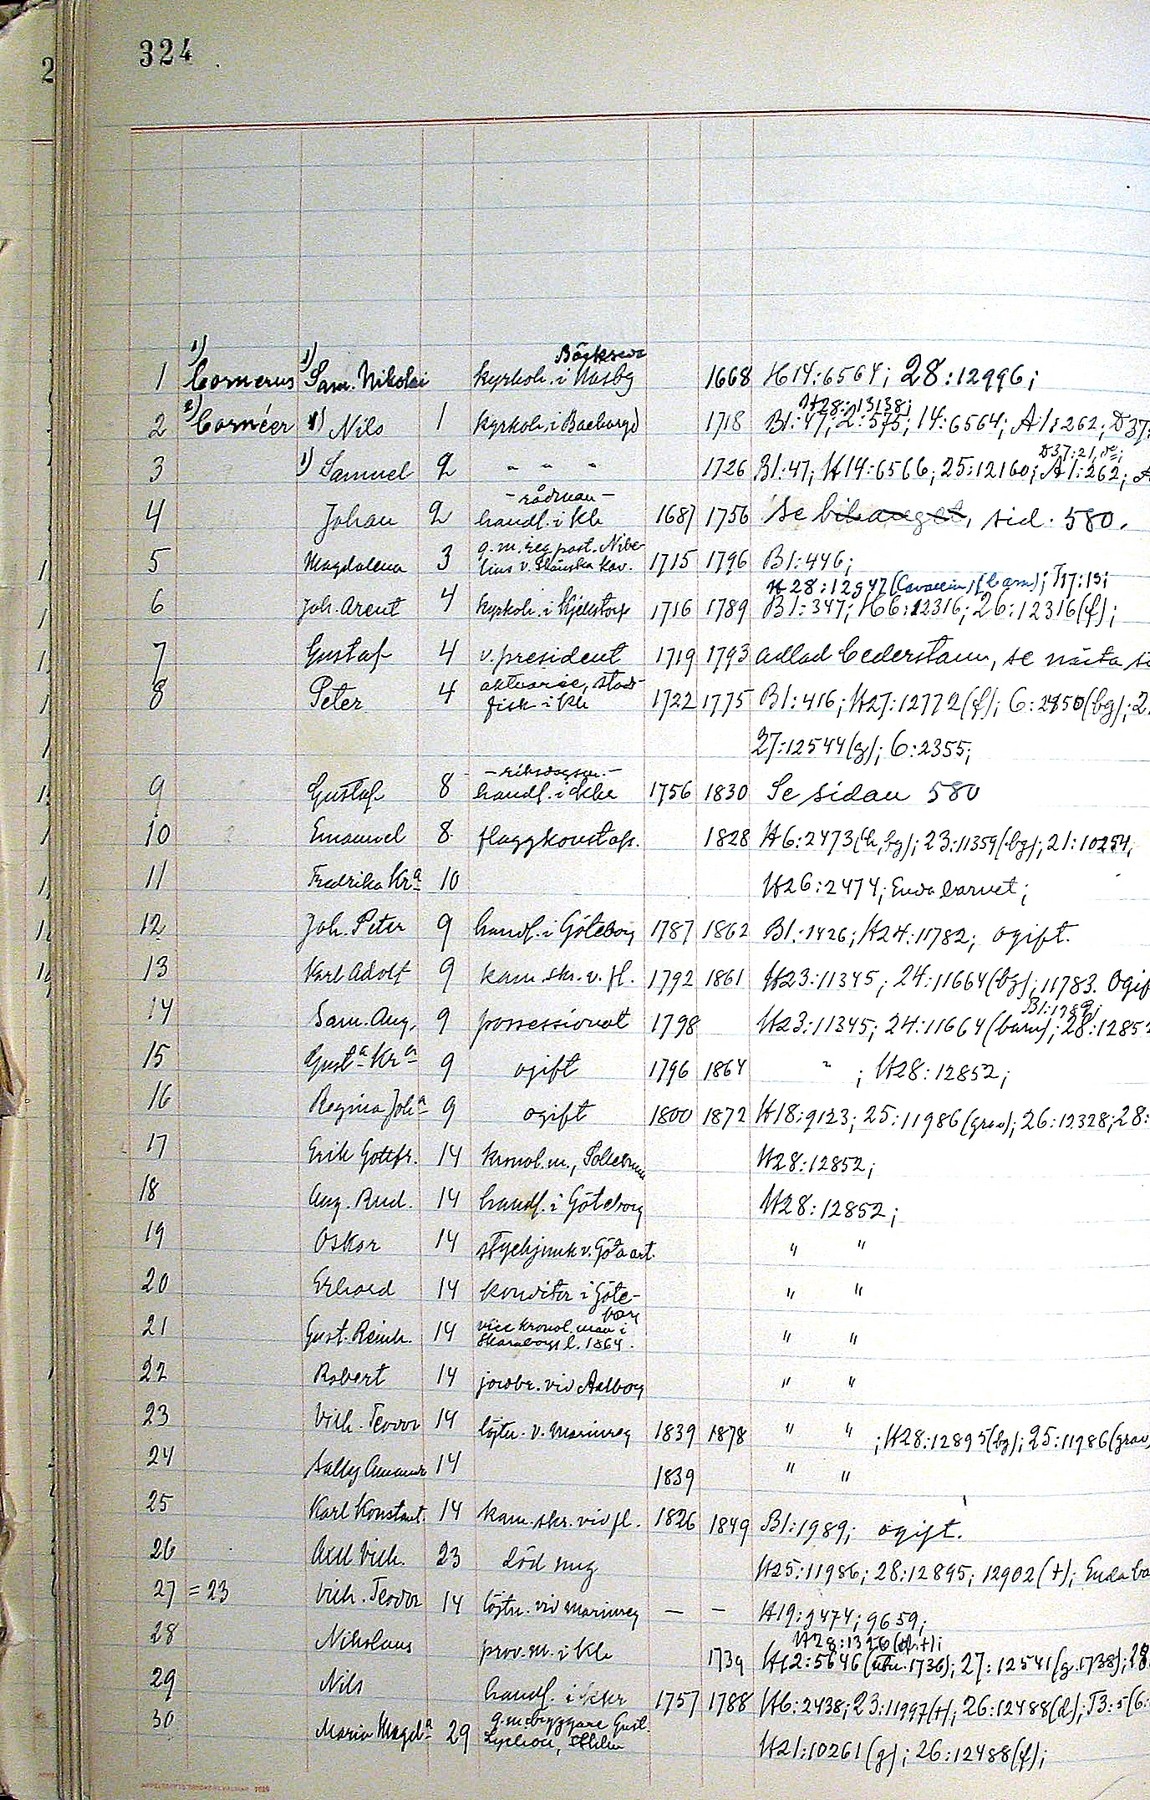 324
Bäckseda
1 1) Cornerus 1) Sam. Nikolai kyrkoh. i Näsby 1668 H14:6564; 28:12996;
H28:13138;
2 2) Cornéer 1) Nils 1 kyrkoh. i Backaryd 1718 B1:47; 2:575; 14:6564; A1:262; D37:
D37:21,
3 1) Samuel 2 " " " 1726 B1:47, H14:6566; 25:12160; A1:262;
- rådman -
4 Johan 2 handl. i Kla 1687 1756 Se bihanget, sid. 580.
g. m. reg. past. Nibe-
5 Magdalena 3 lius v. Skånska kav. 1715 1796 B1:446;
H28:12947 (Cavallin) (barn); T17:13;
6 Joh. Arent 4 kyrkoh. i Hjelstorp 1716 1789 B1:347; H6:12316; 26:12316(f);
7 Gustaf 4 v. president 1719 1793 adlad Cederstam, se nästa
aktuarie, stads-
8 Peter 4 fisk. i Kla 1722 1775 B1:416; H27:12772(f); 6:2850(bg);
27:12544(g); 6:2355;
- riksdagsm. -
9 Gustaf 8 handl. i Kla 1756 1830 Se sidan 580
10 Emanuel 8 flaggkonstap. 1828 H6:2473(h, bg); 23:11359(bg); 21:10254,
11 Fredrika Kra 10 H26:2474; Enda barnet;
12 Joh. Peter 9 handl. i Göteborg 1787 1862 B1:1426; H24:11782; ogift.
13 Karl Adolf 9 kam. skr. v. fl. 1792 1861 H23:11345; 24:11664(bg); 11783. Ogif
14 Sam. Aug. 9 possessionat 1798 H23:11345; 24:11664(barn); 28:12852
15 Gusta Kra 9 ogift 1796 1864 " ; H28:12852;
16 Regina Joha 9 ogift 1800 1872 H18:9123; 25:11986(grav); 26:12328; 28:
17 Erik Gottfr. 14 kronol. m., Sollebrunn H28:12852;
18 Aug. Rud. 14 handl. i Göteborg H28:12852;
19 Oskar 14 styckjunk v. Göta art. " "
20 Erhard 14 konditor i Göte- " "
borg
21 Gust. Reinh. 14 vice kronol. man i " "
Skaraborgs l. 1864.
22 Robert 14 jordbr. vid Aalborg " "
23 Vilh. Teodor 14 löjtn. v. Marinreg 1839 1878 " " ; H28:12895(bg); 25:11986(grav)
24 Sally Amanda 14 1839 " "
25 Karl Konstant. 14 kam. skr. vid fl. 1826 1849 B1:1989; ogift.
26 Axel Vilh. 23 död ung H25:11986; 28:12895; 12902(+); Enda ba
27 = 23 Vilh. Teodor 14 löjtn. vid marinreg — — H19:9474; 9659;
28 Nikolaus prov. m. i Kla 1739 H12:5646 (utn. 1736); 27:12541(g. 1738);
29 Nils handl. i Kkr 1757 1788 H6:2438; 23:11997(+); 26:12488(d); T3:5(6:
g. m. bryggare Gust.
30 Maria Magda 29 H21:10261(g); 26:12488(f);